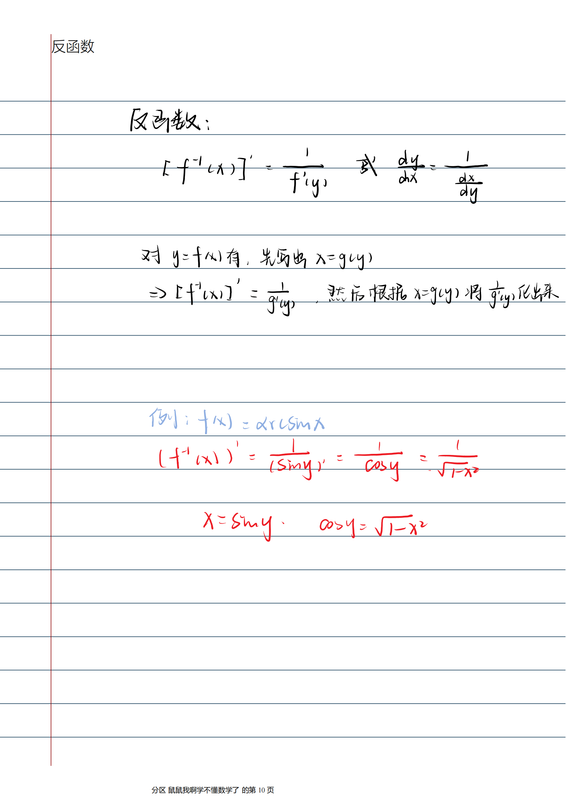 反函数
反函数:
[f⁻¹(x)]' = 1/f'(y) 或 dy/dx = 1/(dx/dy)
对 y=f(x)有, 先写出 x=g(y)
⇒ [f⁻¹(x)]' = 1/g'(y) , 然后根据 x=g(y) 将 1/g'(y) 化出来
例: f(x) = arcsinx
(f⁻¹(x))' = 1/(siny)' = 1/cosy = 1/√(1-x²)
x=siny. cosy=√(1-x²)
分区 鼠鼠我啊学不懂数学了 的第 10 页